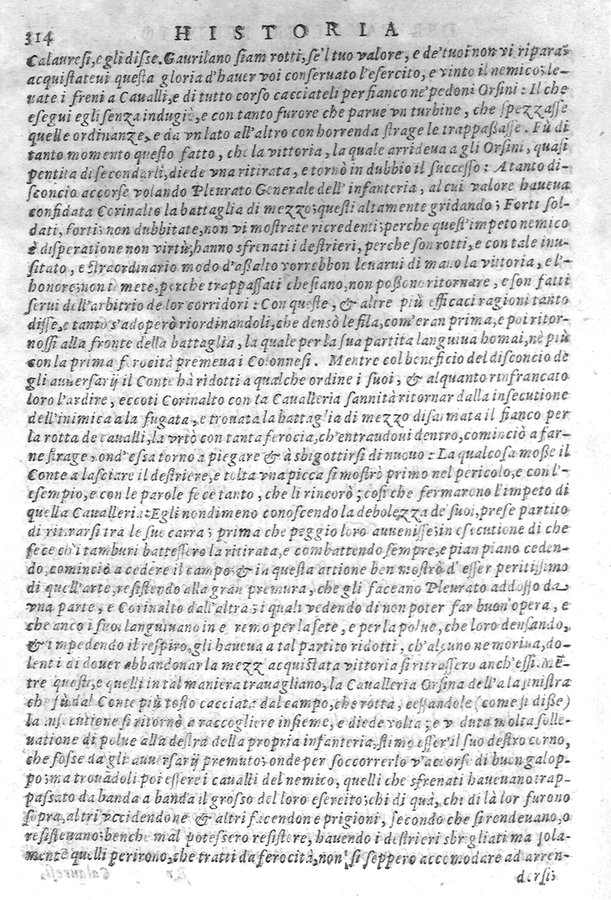 314 HISTORIA
Calauresi, e gli disse. Gaurilano siam rotti, se'l tuo valore, e de' tuoi non vi ripara:
acquistateui questa gloria d'hauer voi conseruato l'esercito, e vinto il nemico: le-
uate i freni a Caualli, e di tutto corso cacciateli per fianco ne' pedoni Orsini: Il che
esegui egli senza indugio, e con tanto furore che parue vn turbine, che spezzasse
quelle ordinanze, e da vn lato all'altro con horrenda strage le trappassasse. Fù di
tanto momento questo fatto, che la vittoria, la quale arrideua a gli Orsini, quasi
pentita di secondarli, diede vna ritirata, e tornò in dubbio il successo: A tanto di-
sconcio accorse volando Pleurato Generale dell'infanteria, al cui valore haueua
confidata Corinalto la battaglia di mezzo; questi altamente gridando; Forti sol-
dati, forti: non dubbitate, non vi mostrate ricredenti; perche quest'impeto nemico
è disperatione non virtù; hanno sfrenati i destrieri, perche son rotti, e con tale inu-
sitato, e straordinario modo d'assalto vorrebbon leuarui di mano la vittoria, e l'-
honore; non temete, perche trappassati che siano, non possono ritornare, e son fatti
serui dell'arbitrio de lor corridori: Con queste, & altre più efficaci ragioni tanto
disse, e tanto s'adoperò riordinandoli, che densò le fila, com'eran prima, e poi ritor-
nossi alla fronte della battaglia, la quale per la sua partita languiua homai, nè più
con la prima ferocità premeua i Colonnesi. Mentre col beneficio del disconcio de
gli auuersarij il Conte hà ridotti a qualche ordine i suoi, & alquanto rinfrancato
loro l'ardire, eccoti Corinalto con la Caualleria sannità ritornar dalla insecutione
dell'inimica a la fugata, e trouata la battaglia di mezzo disarmata il fianco per
la rotta de caualli, la vrtò con tanta ferocia, ch'entraudoui dentro, cominciò a far-
ne strage, ond'essa torno a piegare & a sbigottirsi di nuouo: La qual cosa mosse il
Conte a lasciare il destriere, e tolta vna picca si mostrò primo nel pericolo, e con l'-
esempio, e con le parole fece tanto, che li rincorò; così che fermarono l'impeto di
quella Caualleria: Egli nondimeno conoscendo la debolezza de' suoi, prese partito
di ritirarsi tra le sue carra; prima che peggio loro auuenisse: in esecutione di che
fece che i tamburi battessero la ritirata, e combattendo sempre, e pian piano ceden-
do, cominciò a cedere il campo: & in questa attione ben mostrò d'esser peritissimo
di quell'arte, resistendo alla gran premura, che gli faceano Pleurato addosso da
vna parte, e Corinalto dall'altra: i quali vedendo di non poter far buon'opera, e
che anco i suoi languiuano in e remo per la sete, e per la polue, che loro densando,
& impedendo il respiro, gli haueua a tal partito ridotti, ch'alcuno ne moriua, do-
lenti di douer abbandonar la mezz'acquistata vittoria si ritrassero anch'essi. ME-
tre questi, e quelli in tal maniera trauagliano, la Caualleria Orsina dell'ala sinistra
che fù dal Conte più tosto cacciata dal campo, che rotta, cessandole (come si disse)
la insecutione si ritornò a raccogliere insieme, e diede volta; e veduta molta solle-
uatione di polue alla destra della propria infanteria: stimò esser'il suo destro corno,
che fosse da gli auuersarij premuto: onde per soccorrerlo v'accorse di buon galop-
po; ma trouādoli poi essere i caualli del nemico, quelli che sfrenati haueuano trap-
passato da banda a banda il grosso del loro esercito: chi di quà, chi di là lor furono
sopra, altri vccidendone & altri facendone prigioni, secondo che si rendeuano, o
resisteuano: benche mal potessero resistere, hauendo i destrieri sbrigliati ma sola-
mente quelli perirono, che tratti da ferocità, non si seppero accomodare ad arren-
dersi: